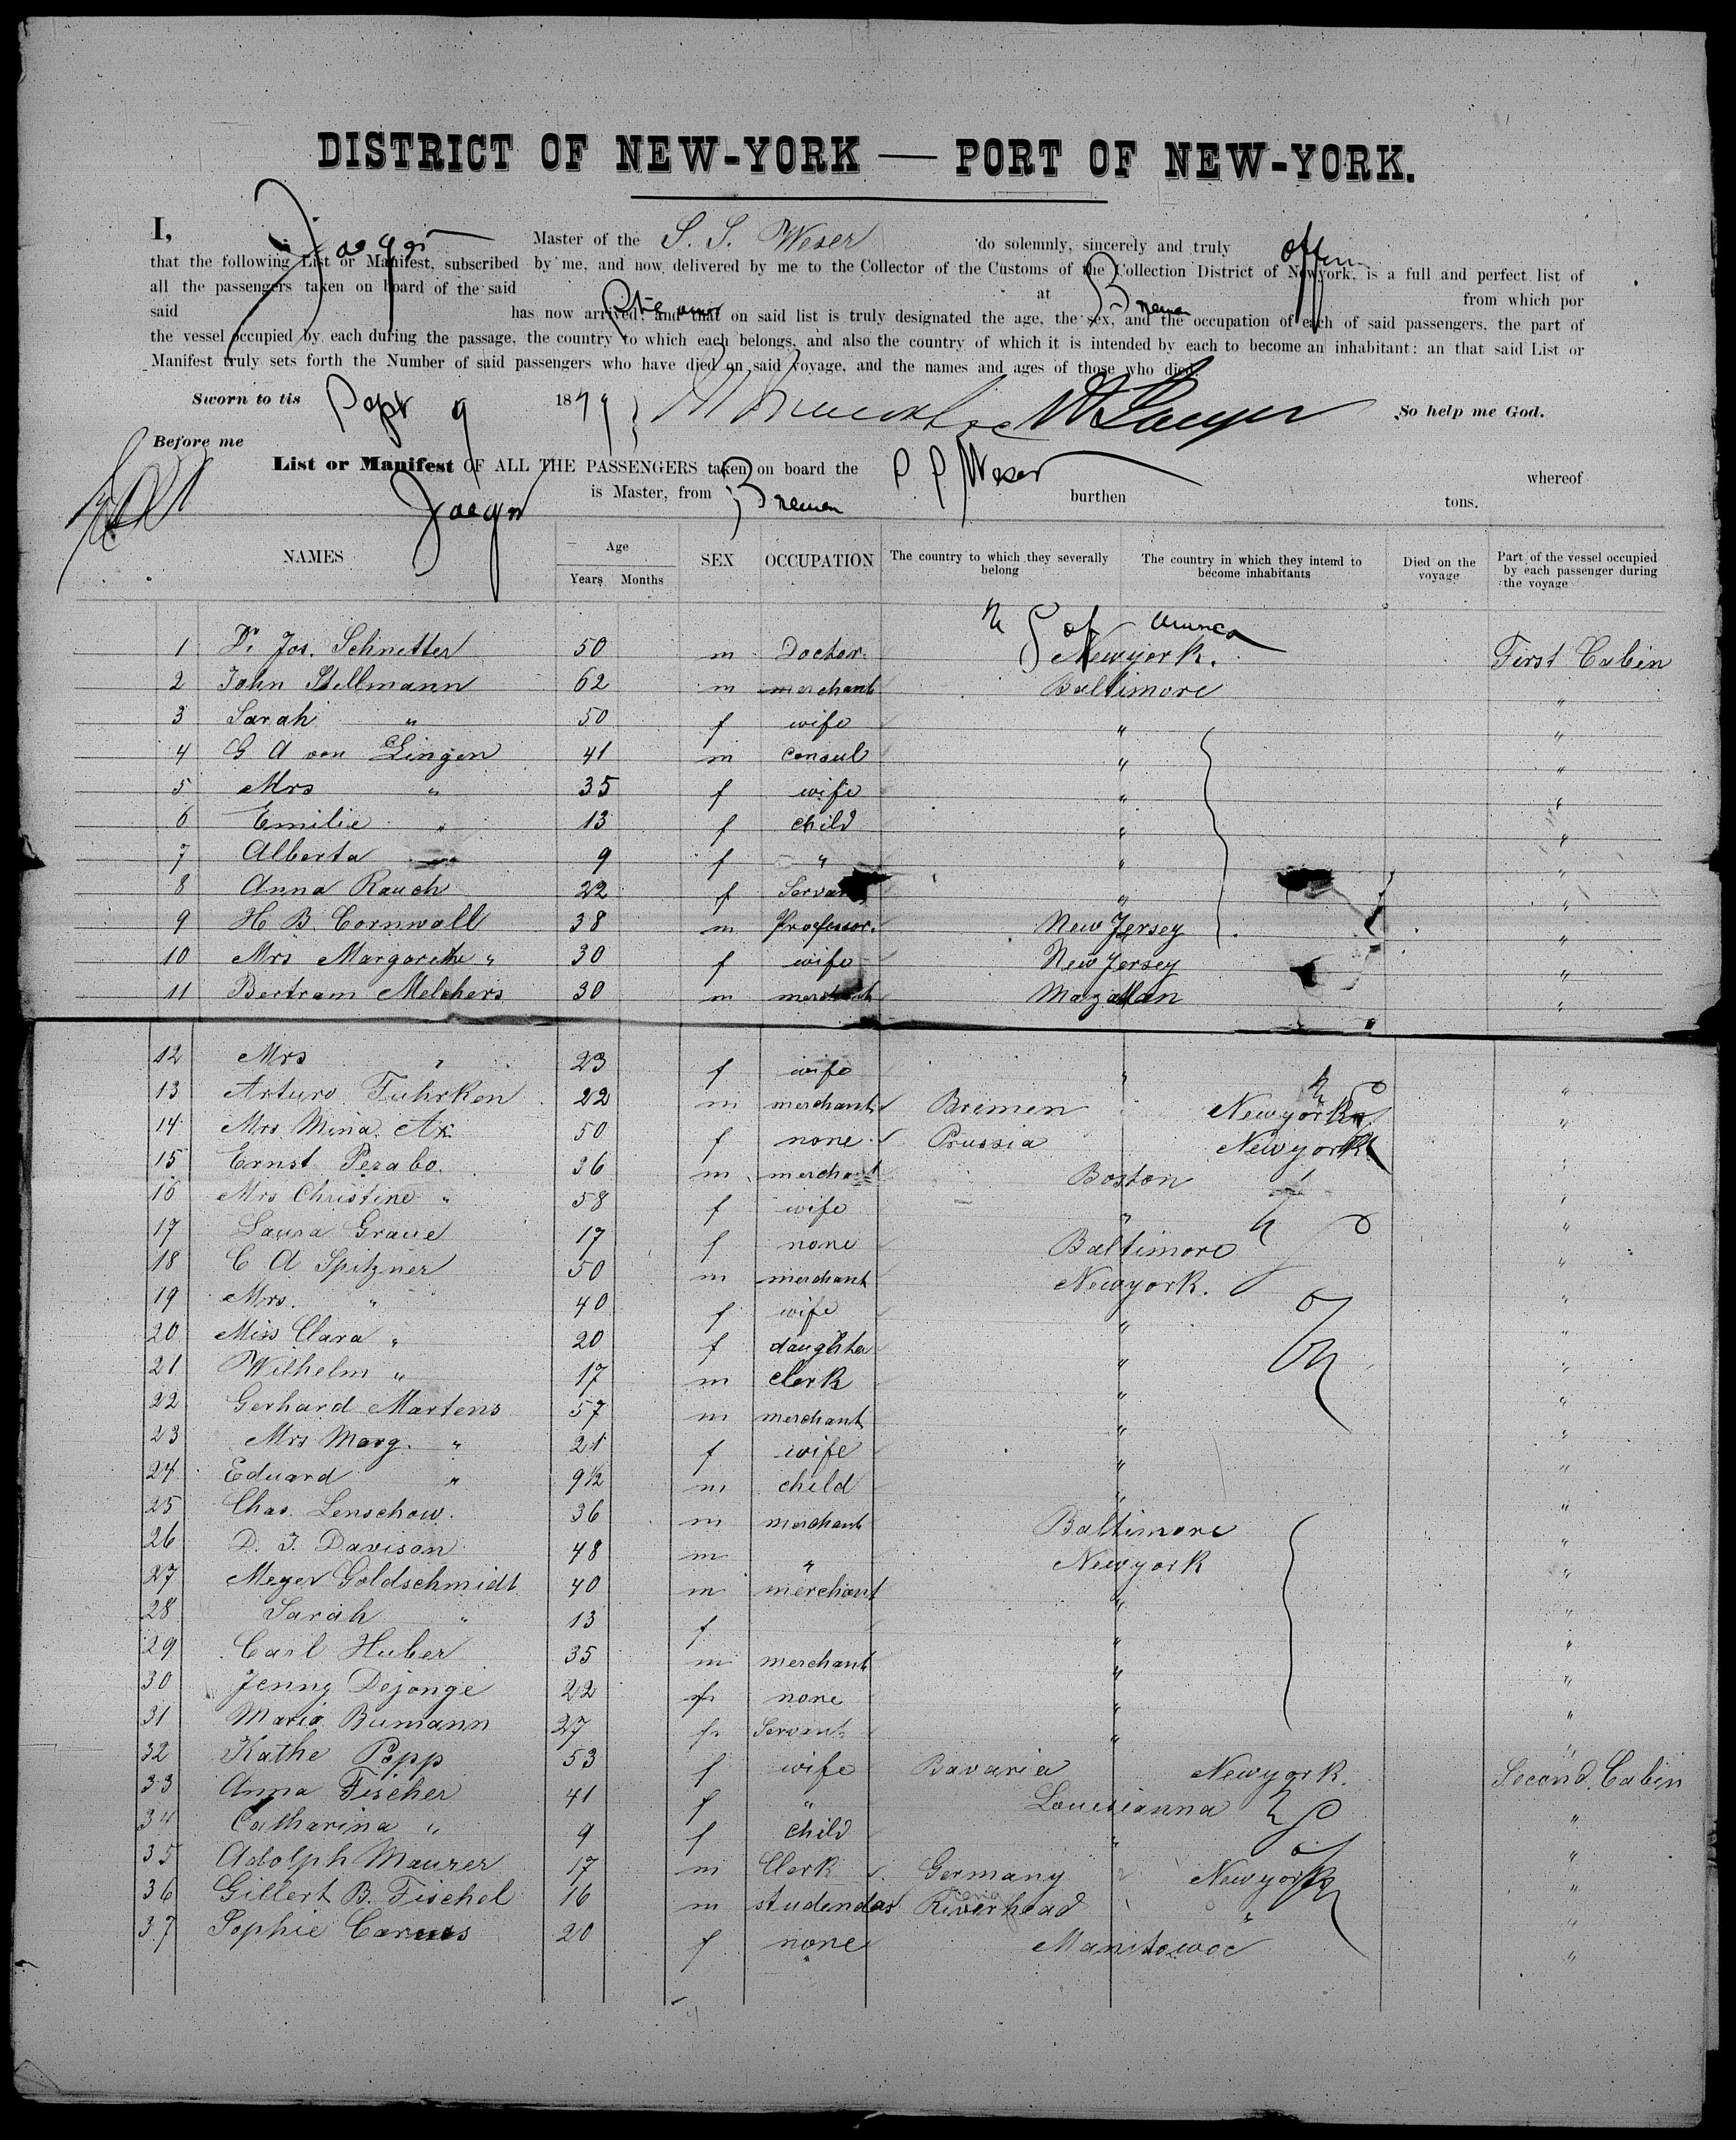 DISTRICT OF NEW-YORK — PORT OF NEW-YORK.
I, Jaeger Master of the S. S. Weser do solemnly, sincerely and truly affirm
that the following List or Manifest, subscribed by me, and now delivered by me to the Collector of the Customs of the Collection District of Newyork, is a full and perfect list of
all the passengers taken on board of the said at Bremen from which por
said Steamer has now arrived: and that on said list is truly designated the age, the sex, and the occupation of each of said passengers, the part of
the vessel occupied by each during the passage, the country to which each belongs, and also the country of which it is intended by each to become an inhabitant: an that said List or
Manifest truly sets forth the Number of said passengers who have died on said voyage, and the names and ages of those who died.
Sworn to tis Sept 9 1879 So help me God.
Before me
List or Manifest OF ALL THE PASSENGERS taken on board the S S Weser whereof
Jaeger is Master, from Bremen burthen tons.
NAMES Age Years Months SEX OCCUPATION The country to which they severally belong The country in which they intend to become inhabitants Died on the voyage Part of the vessel occupied by each passenger during the voyage
U S of America
1 Dr. Jos. Schnetter 50 m Doctor Newyork. First Cabin
2 John Stellmann 62 m merchant Baltimore "
3 Sarah " 50 f wife " "
4 G A von Lingen 41 m consul " "
5 Mrs " 35 f wife " "
6 Emilie " 13 f child " "
7 Alberta " 9 f " " "
8 Anna Rauch 22 f Servant " "
9 H B. Cornwall 38 m Professor. New Jersey "
10 Mrs Margarethe " 30 f wife New Jersey "
11 Bertram Melchers 30 m merchant Mazatlan "
12 Mrs " 23 f wife " "
13 Arturo Fuhrken 22 m merchant Bremen Newyork "
14 Mrs Mina Ax 50 f none Prussia Newyork "
15 Ernst Perabo. 36 m merchant Boston "
16 Mrs Christine " 58 f wife " "
17 Laura Graue 17 f none Baltimore "
18 C A Spitzner 50 m merchant Newyork. "
19 Mrs. " 40 f wife " "
20 Miss Clara " 20 f daughter " "
21 Wilhelm " 17 m clerk " "
22 Gerhard Martens 57 m merchant " "
23 Mrs Marg. " 21 f wife " "
24 Eduard " 9½ m child " "
25 Chas. Lenschow. 36 m merchant Baltimore "
26 D. J. Davison 48 m " Newyork "
27 Meyer Goldschmidt 40 m merchant " "
28 Sarah " 13 f " "
29 Carl Huber 35 m merchant " "
30 Jenny Dejonge 22 f none " "
31 Maria Bumann 27 f Servant " "
32 Kathe Popp 53 f wife Bavaria Newyork. Second Cabin
33 Anna Fischer 41 f " Louisianna "
34 Catharina " 9 f child " "
35 Adolph Maurer 17 m Clerk Germany Newyork "
36 Gillert B. Fischel 16 m Riverhead " "
37 Sophie 20 f none Manitowoc "